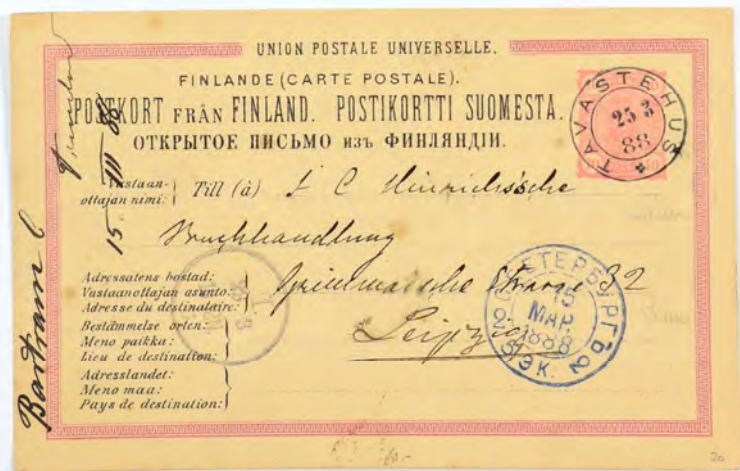 UNION POSTALE UNIVERSELLE.
FINLANDE (CARTE POSTALE).
POSTKORT FRÅN FINLAND. POSTIKORTTI SUOMESTA.
ОТКРЫТОЕ ПИСЬМО изъ ФИНЛЯНДІИ.
TAVASTEHUS
25 3
88
Vastaan-
ottajan nimi:
Till (à) J C Hinrichs'sche
Buchhandlung
Adressatens bostad:
Vastaanottajan asunto:
Adresse du destinataire:
Grimmaische Strasse 32
Bestämmelse orten:
Meno paikka:
Lieu de destination:
Leipzig
Adresslandet:
Meno maa:
Pays de destination:
С.ПЕТЕРБУРГЪ 2
15
МАР.
1888
ЭК.
15 III 88
Bartram
20